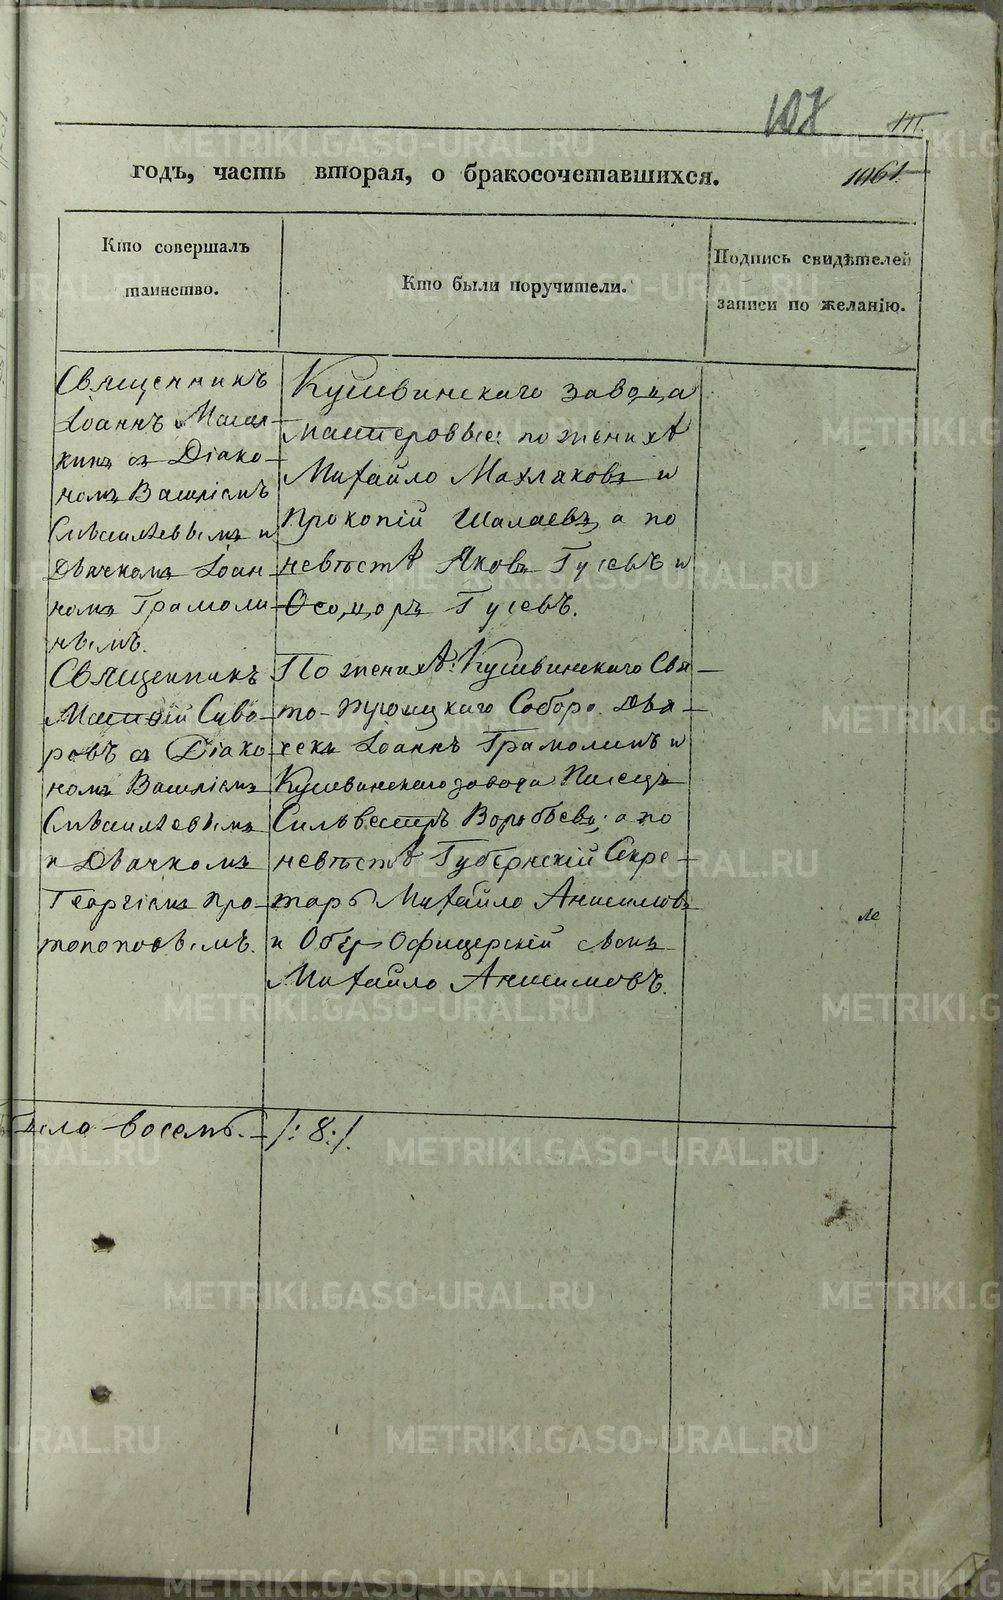 107
III.
годъ, часть вторая, о бракосочетавшихся.
1061.
Кто совершалъ
таинство.
Кто были поручители.
Подпись свидѣтелей
записи по желанію.
Священникъ
Іоаннъ
съ Діако-
номъ Василіемъ
и
Дьячкомъ Іоан-
номъ Грамоли
нымъ.
Кушвинскаго завода
мастеровые: по женихѣ
Михайло Махляковъ и
Прокопій Шалаевъ, а по
невѣстѣ Яковъ Гусевъ и
Ѳеодоръ Гусевъ.
Священникъ
Матѳій Суво-
ровъ съ Діако
номъ Василіемъ
и Дьячкомъ
Георгіемъ Про-
топоповымъ.
По женихѣ: Кушвинскаго Свя-
то-Троицкаго Собора Дья-
чекъ Іоаннъ Грамолинъ и
Кушвинскаго завода Писецъ
Сильвестръ Воробьевъ; а по
невѣстѣ Губернскій Секре-
тарь Михайло Анисимовъ
и Оберъ Офицерскій сынъ
Михайло Анисимовъ.
восемь. /: 8 :/
METRIKI.GASO-URAL.RU